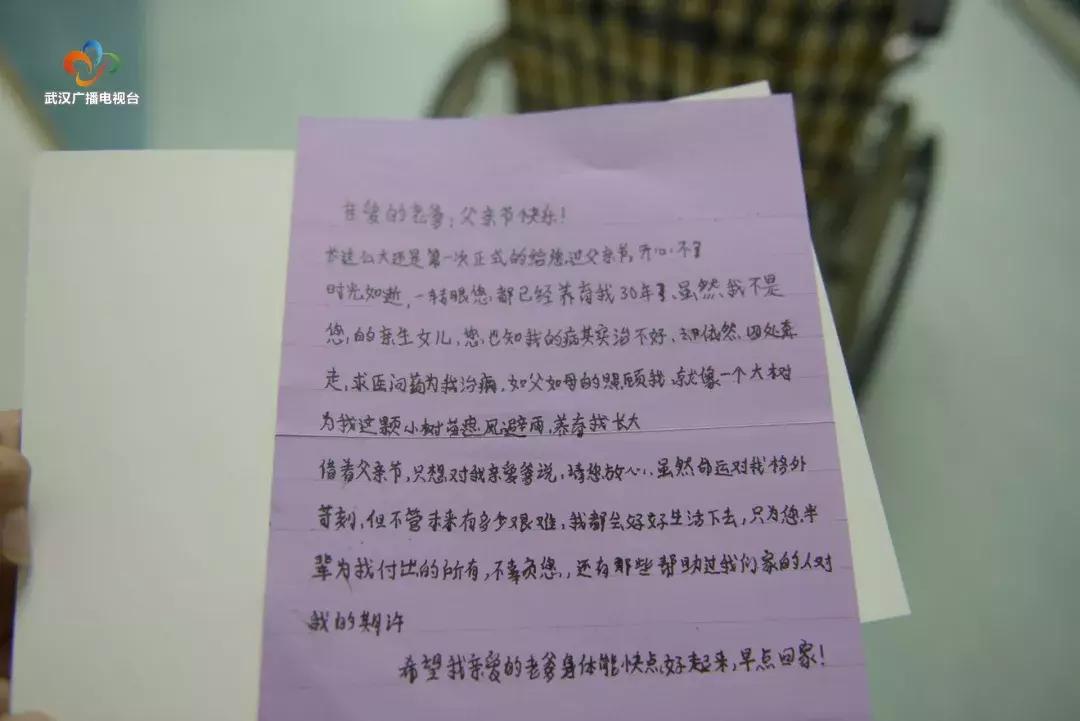 武汉广播电视台
亲爱的老爹，父亲节快乐！
长这么大还是第一次正式的给您过父亲节，开心不
时光如逝，一转眼您都已经养育我30年了、虽然我不是
您的亲生女儿，您也知我的病其实治不好，却依然四处奔
走，求医问药为我治病，如父如母的照顾我，就像一个大树
为我这颗小树苗遮风避雨，养育我长大
借着父亲节，只想对我亲爱爹说，请您放心，虽然命运对我格外
苛刻，但不管未来有多少艰难，我都会好好生活下去，只为您半
辈为我付出的所有，不辜负您，还有那些帮助过我们家的人对
我的期许
希望我亲爱的老爹身体能快点好起来，早点回家！